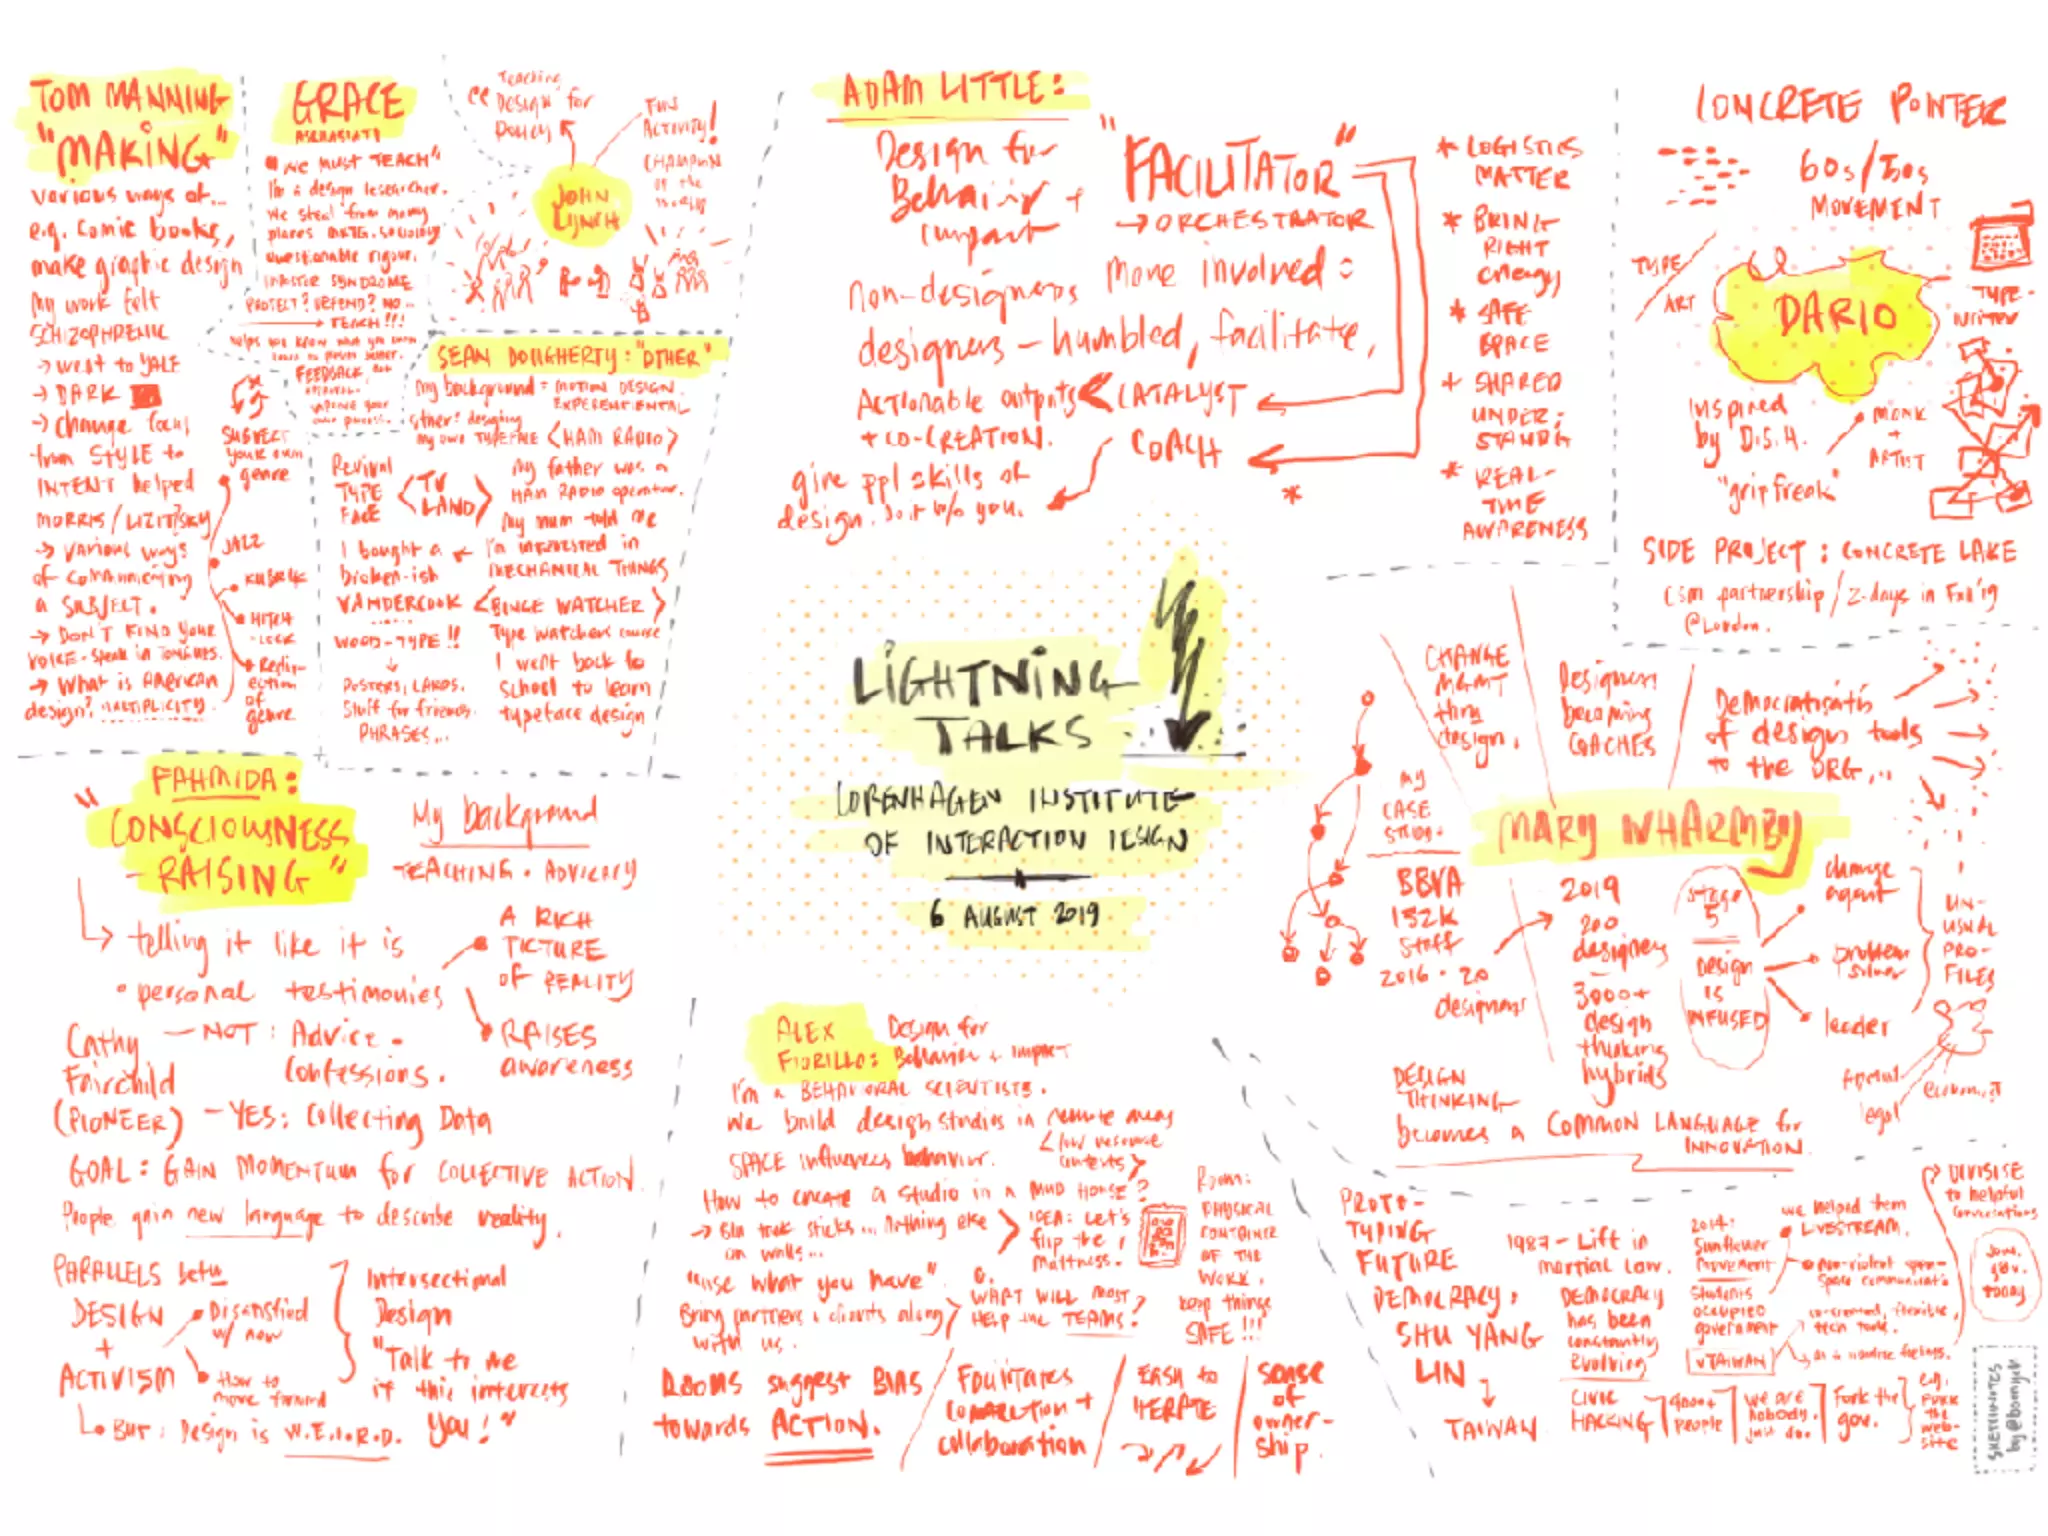 TOM MANNING
"MAKING"
various ways of...
e.g. comic books,
make graphic design
my work felt
SCHIZOPHRENIC
→ went to YALE
→ DARK
→ change focus
from STYLE to
INTENT helped
MORRIS /
→ various ways
of communicating
a SUBJECT.
→ DON'T FIND your
VOICE - speak in TONGUES.
→ What is American
design? MULTIPLICITY
SUBVERT
your own
genre
JAZZ
KUBRICK
HITCH
COCK
Redir-
ection
of
genre
GRACE
"WE MUST TEACH"
I'm a design researcher.
We steal from many
places MKTG, SOCIOLOGY
questionable rigour.
IMPOSTER SYNDROME
PROTECT? DEFEND? NO...
→ TEACH!!!
helps you know what you
FEEDBACK,
improve your
own process.
"Teaching
Design for
policy
FUN
ACTIVITY!
CHAMPION
of the
JOHN
LYNCH
SEAN DOUGHERTY: "OTHER"
my background = MOTION DESIGN.
EXPERIENTIAL
other: designing
my own TYPEFACE <HAM RADIO>
Revival
TYPE
FACE
<TV
LAND>
my father was a
HAM RADIO operator.
my mum told me
I'm interested in
MECHANICAL THINGS
I bought a
broken-ish
VANDERCOOK
<BINGE WATCHER>
WOOD-TYPE!!
Posters, cards.
stuff for friends.
PHRASES...
Type Watchers course
I went back to
school to learn
typeface design
ADAM LITTLE:
Design for
Behavior +
impact
"FACILITATOR"
→ ORCHESTRATOR
non-designers more involved:
designers - humbled, facilitate,
Actionable outputs < CATALYST
+ CO-CREATION.
COACH
give ppl skills of
design. Do it w/o you.
*
* LOGISTICS
MATTER
* BRING
RIGHT
energy
* SAFE
SPACE
+ SHARED
UNDER-
STANDG
* REAL-
TIME
AWARENESS
CONCRETE POINTER
60s/50s
MOVEMENT
TYPE/
ART
DARIO
TYPE-
WRITER
Inspired
by D.S.H.
MONK
+
ARTIST
"gripfreak"
SIDE PROJECT: CONCRETE LAKE
CSM partnership / 2-days in Feb'19
@London.
LIGHTNING
TALKS
COPENHAGEN INSTITUTE
OF INTERACTION DESIGN
6 AUGUST 2019
FAHMIDA:
"CONSCIOUSNESS
- RAISING"
My background
TEACHING · ADVOCACY
→ telling it like it is
• personal testimonies
A RICH
PICTURE
OF REALITY
RAISES
awareness
Cathy
Fairchild
(PIONEER)
— NOT: Advice.
Confessions.
- YES: Collecting Data
GOAL: GAIN MOMENTUM for COLLECTIVE ACTION
People gain new language to describe reality.
PARALLELS betw
DESIGN
+
ACTIVISM
Dissatisfied
w/ now
How to
move forward
BUT: Design is W.E.I.R.D.
Intersectional
Design
"Talk to me
if this interests
you!"
ALEX
FIORILLO:
Design for
Behavior & impact
I'm a BEHAVIORAL SCIENTISTS.
We build design studios in remote areas
<low resource
contexts>
SPACE influences behavior.
How to create a studio in a MUD HOUSE?
→ Blu tack sticks... nothing else
on walls...
IDEA: Let's
flip the
mattress.
"use what you have".
Bring partners & clients along
with us.
WHAT WILL MOST
HELP the TEAMS?
Room:
PHYSICAL
CONTAINER
OF THE
WORK.
keep things
SAFE!!!
ROOMS suggest BIAS
towards ACTION.
Facilitates
connection +
collaboration
EASY to
ITERATE
sense
of
owner-
ship.
CHANGE
MGMT
thru
design.
Designers
becoming
COACHES
Democratisatn
of design tools
to the ORG...
MY
CASE
STUDY:
MARY WHARMBY
BBVA
132K
staff
2016 · 20
designers
2019
200
designers
3000+
design
thinking
hybrids
Stage
5
Design
is
INFUSED
change
agent
problem
solver
leader
UN-
USUAL
PRO-
FILES
legal
economist
DESIGN
THINKING
becomes a COMMON LANGUAGE for
INNOVATION.
PROTO-
TYPING
FUTURE
DEMOCRACY:
SHU YANG
LIN
TAIWAN
1987 - Lift in
martial law.
DEMOCRACY
has been
constantly
Evolving
2014:
Sunflower
movement
Students
occupied
government
vTAIWAN
we helped them
LIVESTREAM.
non-violent open-
space communicatn
co-created, iterative,
tech tools.
DIVISIVE
to helpful
conversations
gov.
today
CIVIC
HACKING
people
we are
nobody.
just do.
Fork the
gov.
e.g.
FORK
the
web-
site
SKETCHNOTES
by @boonych